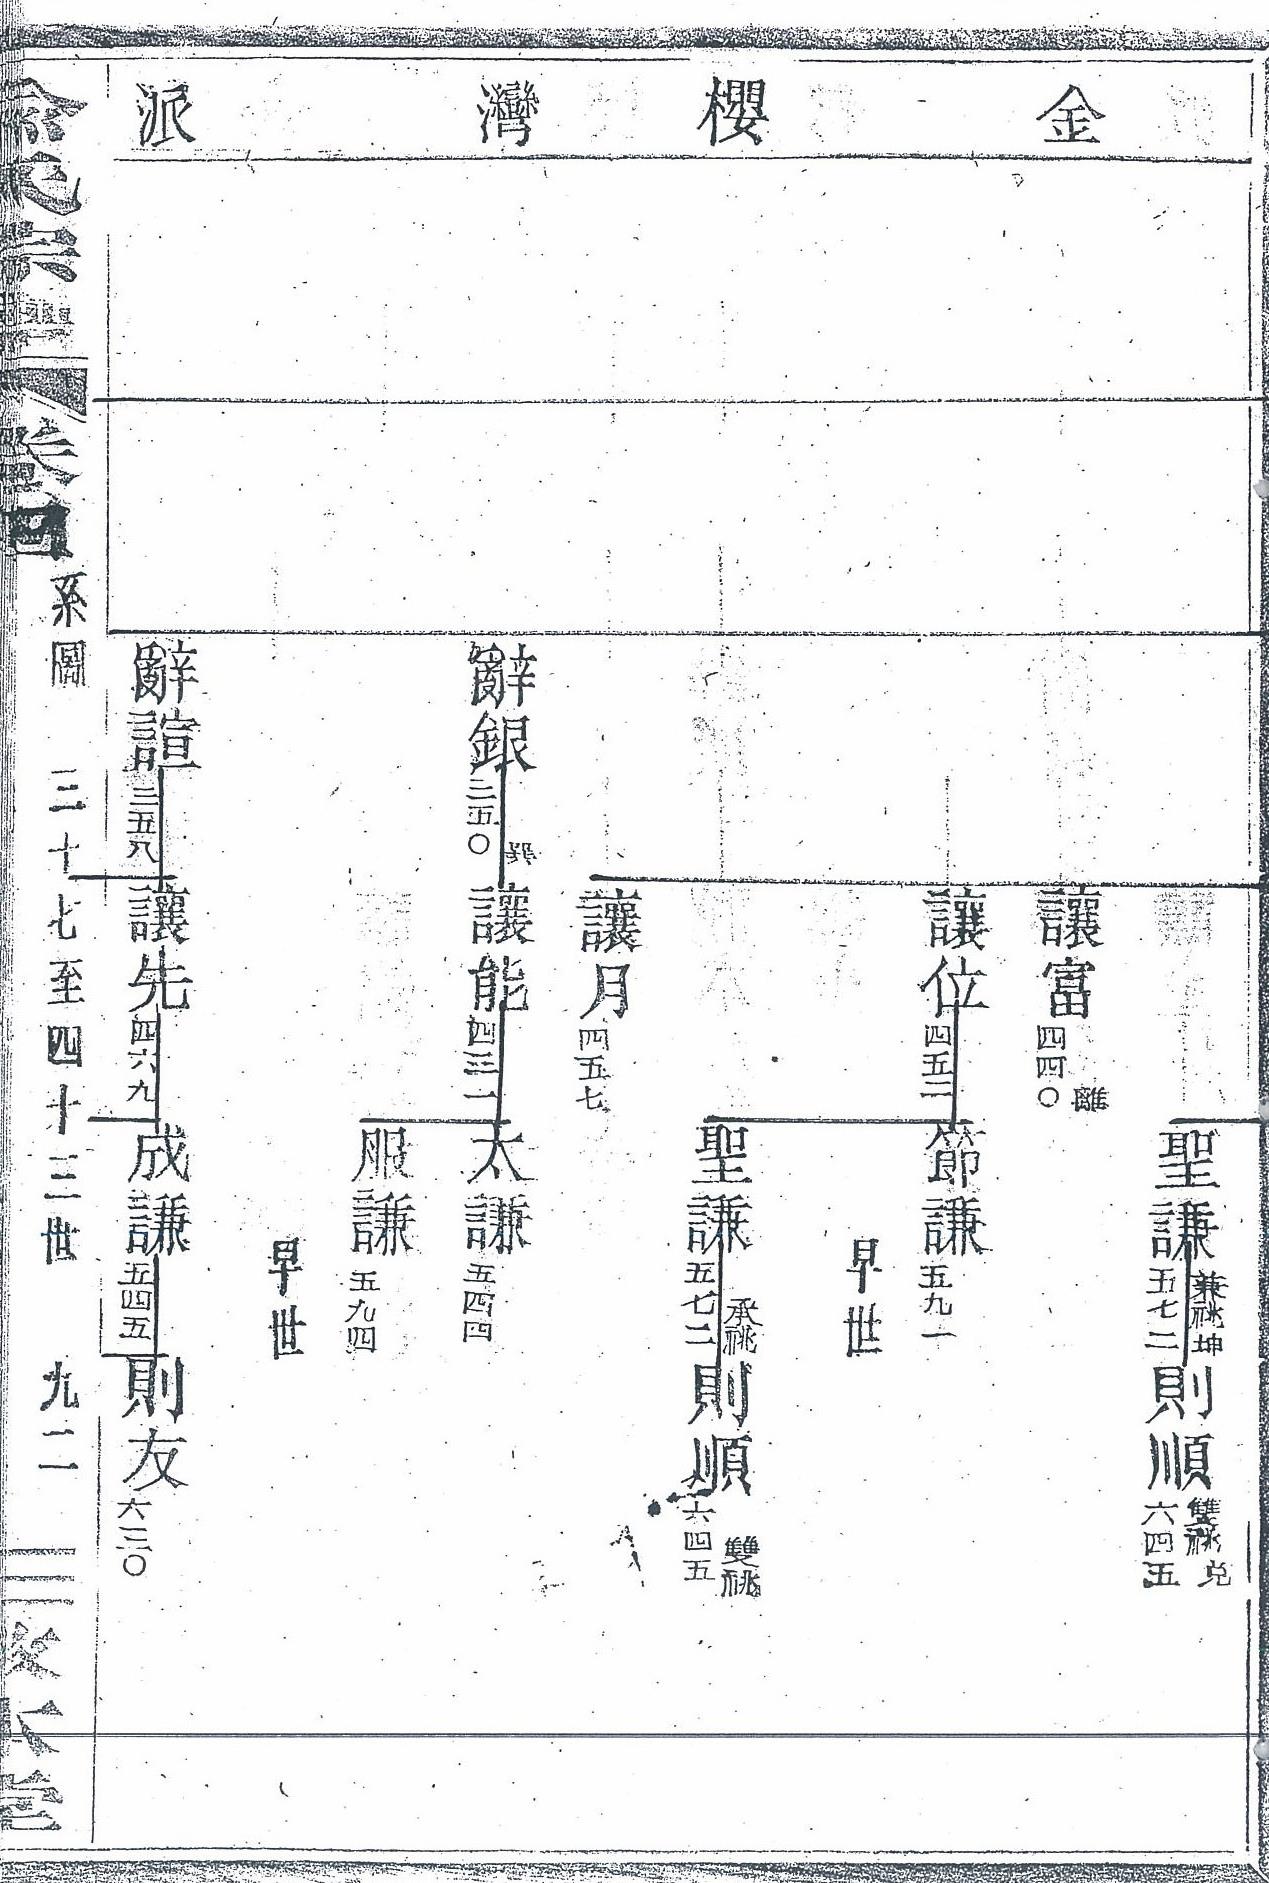 金櫻灣派
聖謙
五七二
兼祧坤
則順
六四五
雙祧兌
讓富
四四〇
離
讓位
四五二
節謙
五九一
早世
聖謙
五七二
承祧
則順
六四五
雙祧
讓月
四五七
辭銀
三五〇
讓能
四三一
太謙
五四四
服謙
五九四
早世
辭諠
三五八
讓先
四六九
成謙
五四五
則友
六三〇
系圖 三十七至四十三世 九二